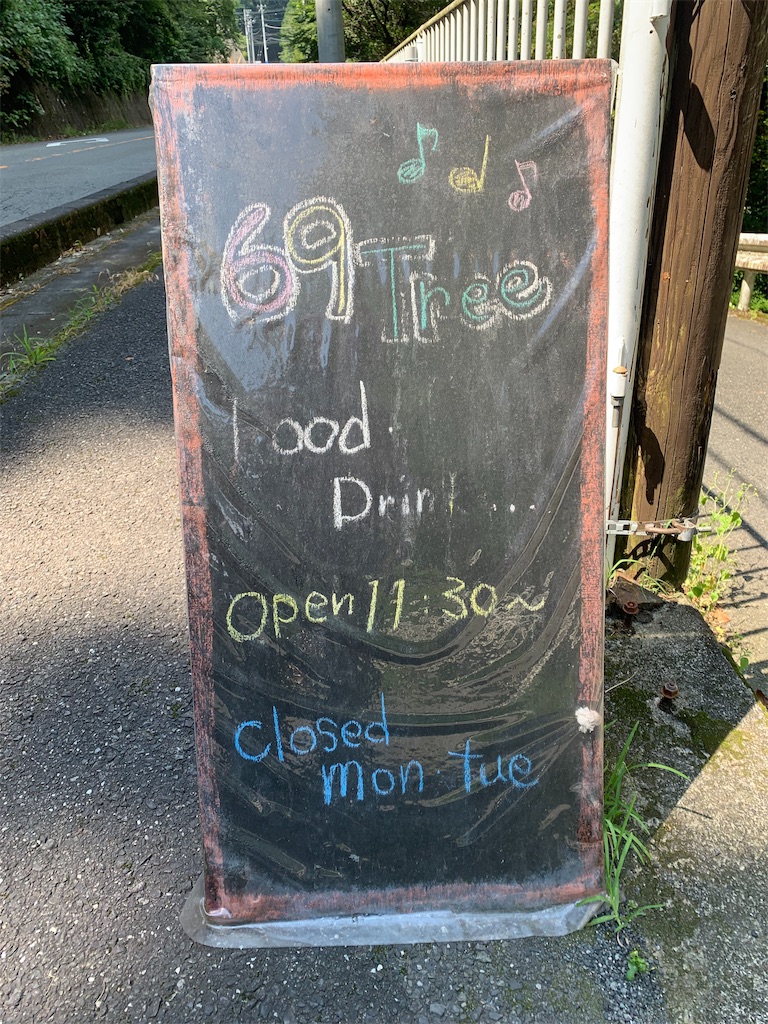 69 Tree
Food
Drink ...
Open 11:30~
closed
mon. tue